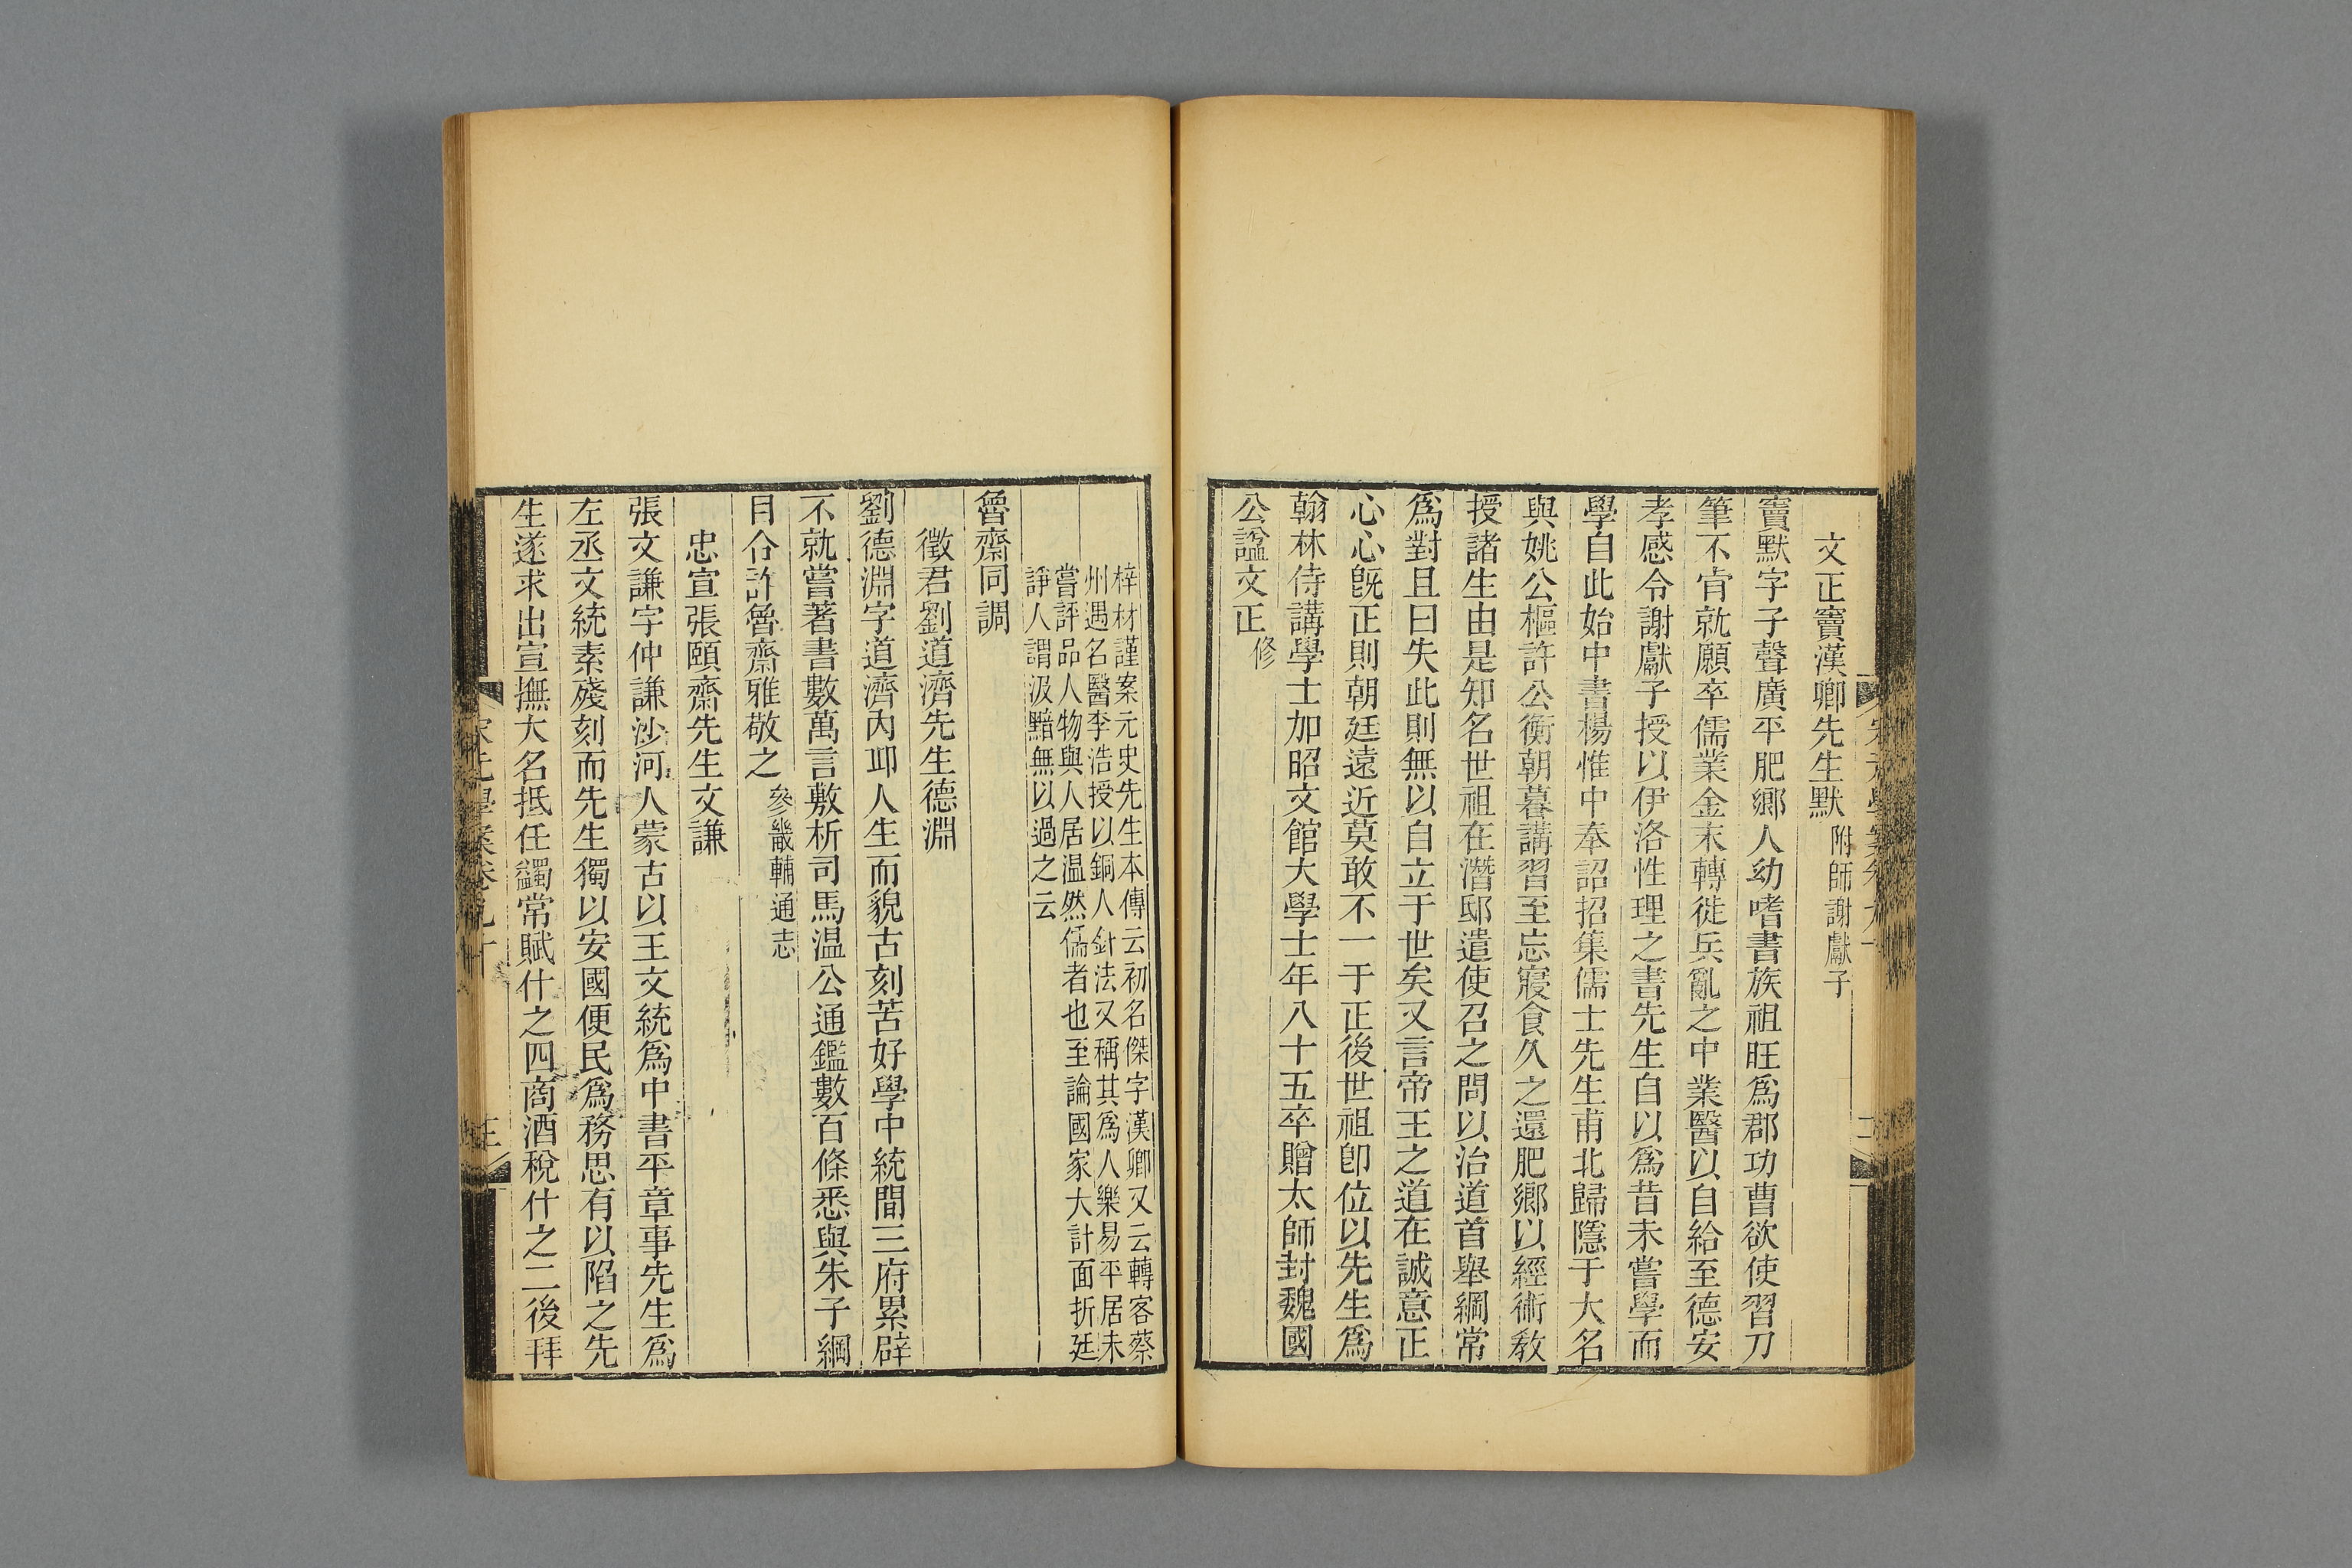 文正竇漢卿先生默附師謝獻子
竇默字子聲廣平肥鄉人幼嗜書族祖旺爲郡功曹欲使習刀
筆不肯就願卒儒業金末轉徙兵亂之中業醫以自給至德安
孝感令謝獻子授以伊洛性理之書先生自以爲昔未嘗學而
學自此始中書楊惟中奉詔招集儒士先生甫北歸隱于大名
與姚公樞許公衡朝暮講習至忘寢食久之還肥鄉以經術敎
授諸生由是知名世祖在潛邸遣使召之問以治道首舉綱常
爲對且曰失此則無以自立于世矣又言帝王之道在誠意正
心心旣正則朝廷遠近莫敢不一于正後世祖卽位以先生爲
翰林侍講學士加昭文館大學士年八十五卒贈太師封魏國
公諡文正修
梓材謹案元史先生本傳云初名傑字漢卿又云轉客蔡
州遇名醫李浩授以銅人針法又稱其爲人樂易平居未
嘗評品人物與人居温然儒者也至論國家大計面折廷
諍人謂汲黯無以過之云
魯齋同調
徵君劉道濟先生德淵
劉德淵字道濟內邱人生而貌古刻苦好學中統間三府累辟
不就嘗著書數萬言敷析司馬温公通鑑數百條悉與朱子綱
目合許魯齋雅敬之參畿輔通志
忠宣張頤齋先生文謙
張文謙字仲謙沙河人蒙古以王文統爲中書平章事先生爲
左丞文統素殘刻而先生獨以安國便民爲務思有以陷之先
生遂求出宣撫大名抵任蠲常賦什之四商酒稅什之二後拜
宋元學案卷九十